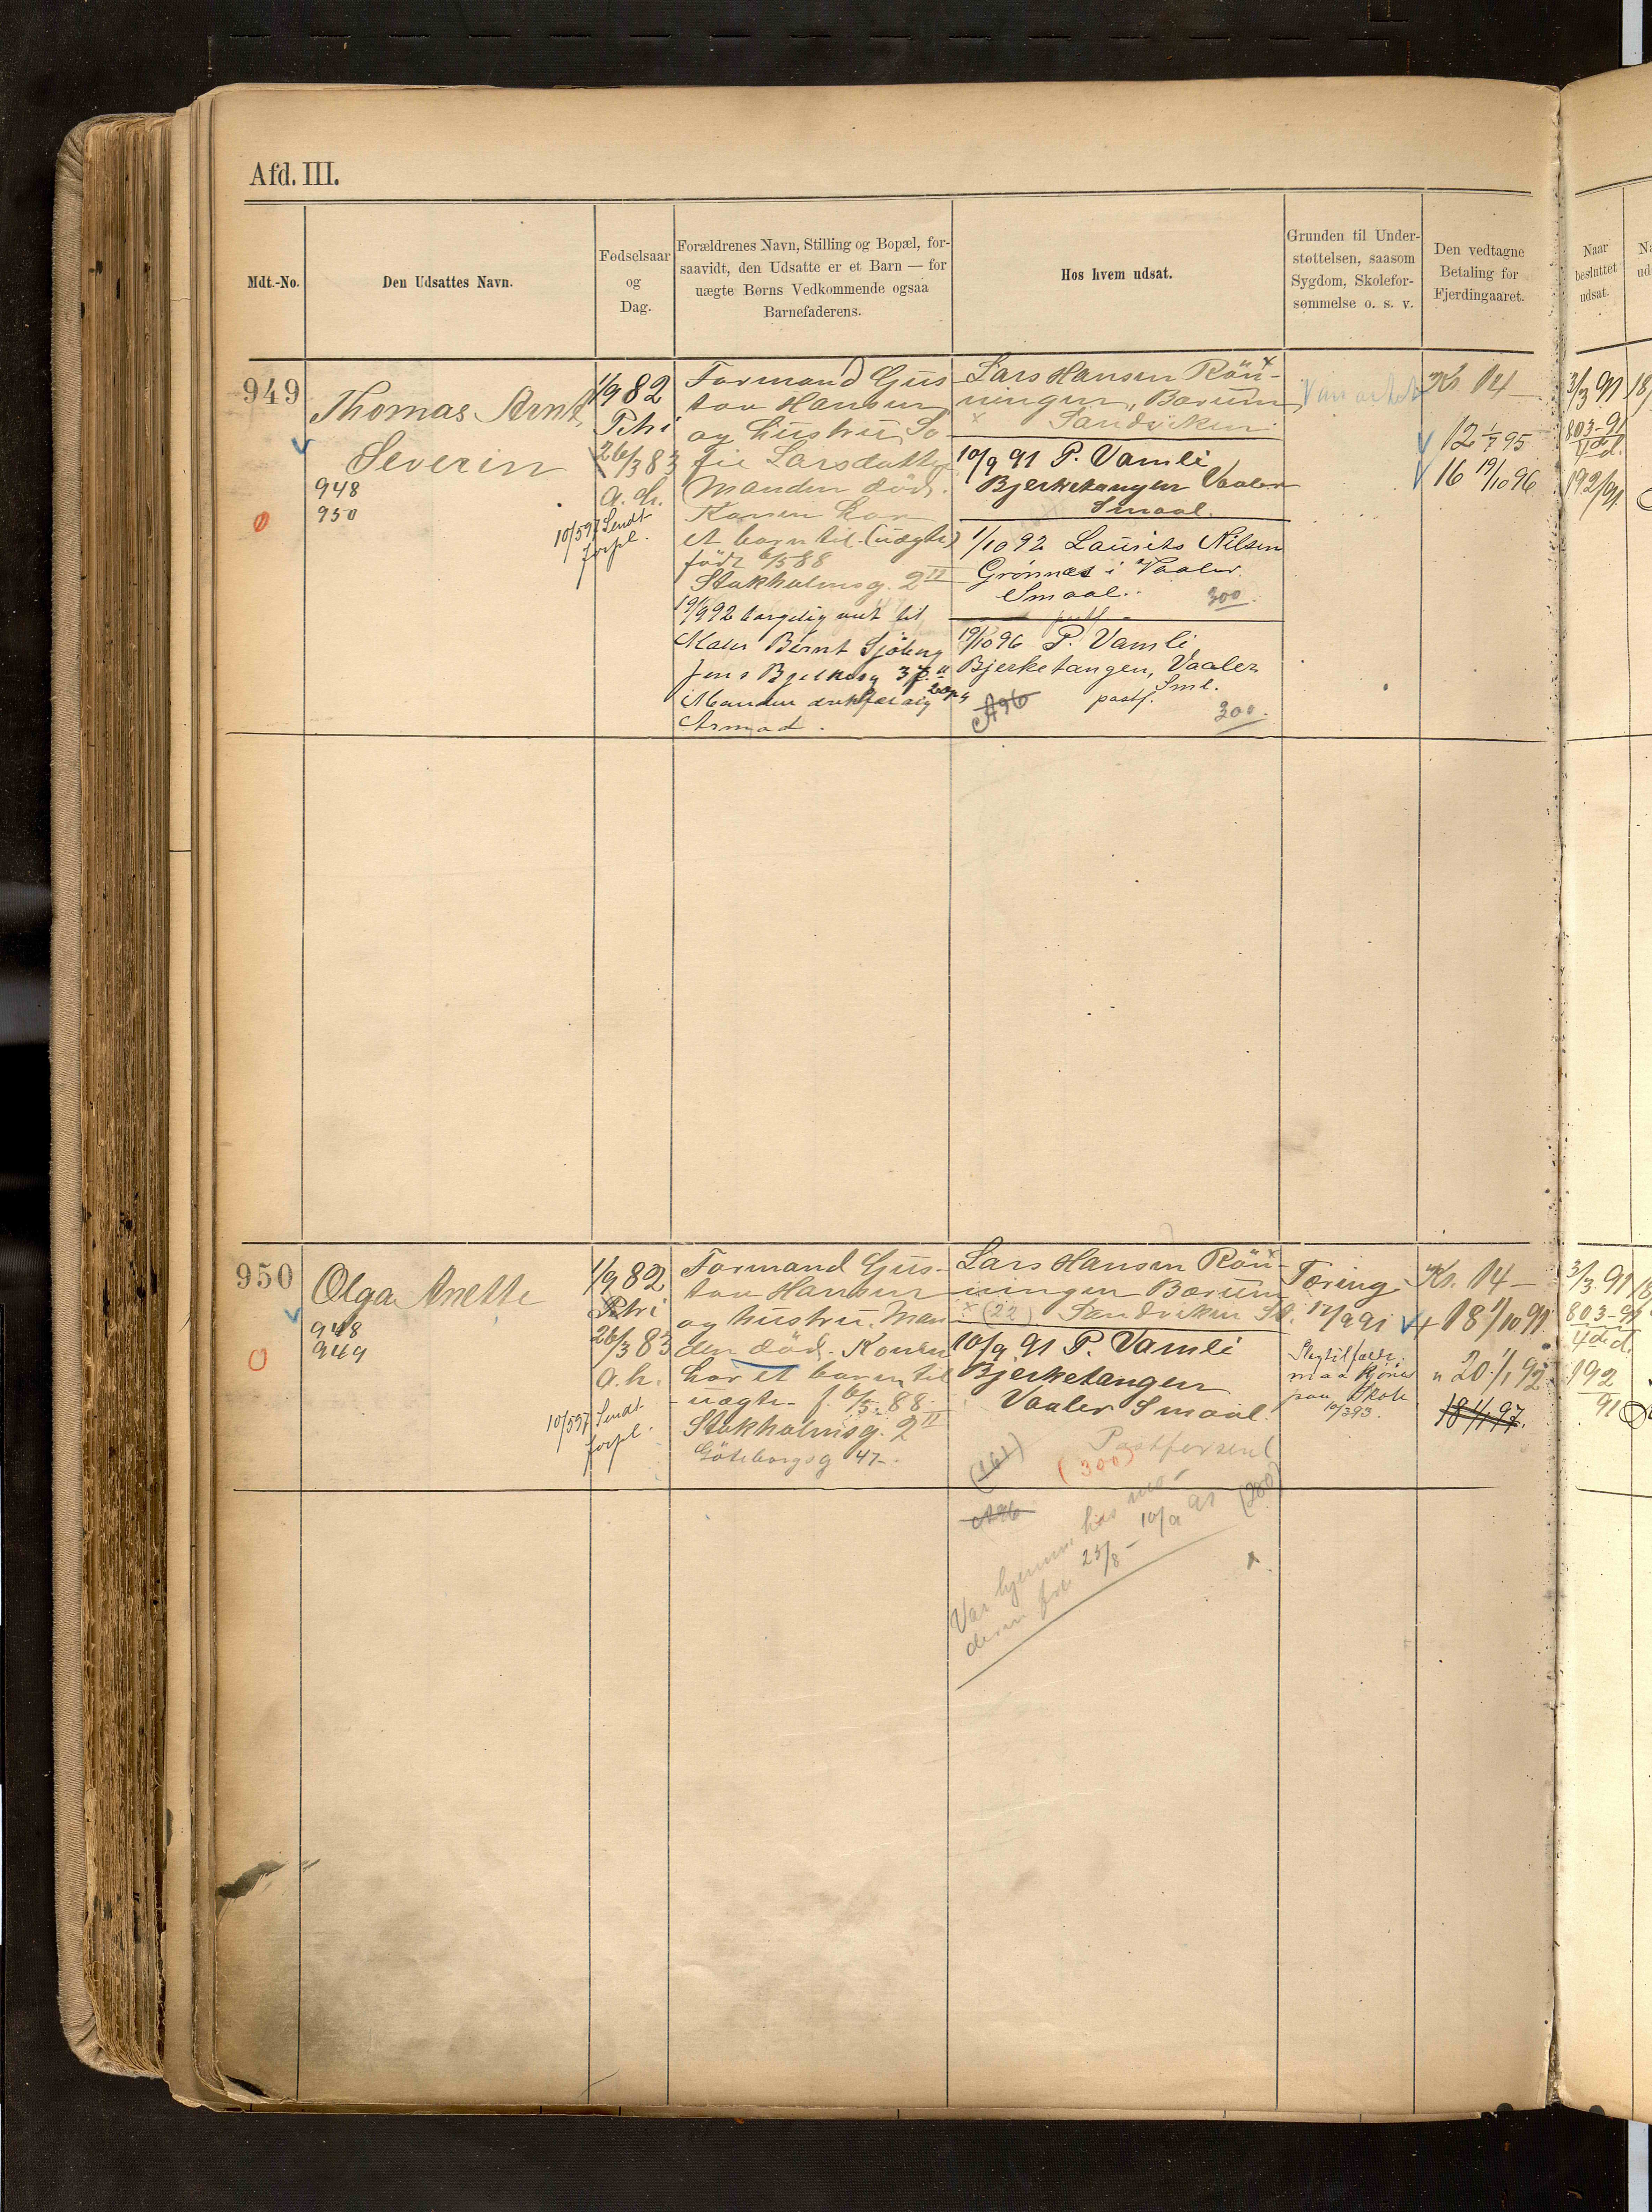 Afd. III.
Mdt.-No.
Den Udsattes Navn.
Fødselsaar
og
Dag.
Forældrenes Navn, Stilling og Bopæl, for-
saavidt, den Udsatte er et Barn — for
uægte Børns Vedkommende ogsaa
Barnefaderens.
Hos hvem udsat.
Grunden til Under-
støttelsen, saasom
Sygdom, Skolefor-
sømmelse o. s. v.
Den vedtagne
Betaling for
Fjerdingaaret.
Naar
besluttet
udsat.
949
Thomas Arnt
Severin
948
950
1/9 82
Petri
26/3 83
a. h.
10/5 97 Sendt
forpl.
Formand Gus
tav Hansen
og hustru So-
fie Larsdatter
Manden död.
Konen har
et barn til (uægte)
född 6/5 88
Stokholmsg. 2 II
19/9 92 borgelig viet til
Maler Bernt Sjöberg
Jens Bjelkesg 37 II
Manden drikfældig
Armod.
Lars Hansen Rön-
ningen, Bærum
Sandviken
10/9 91 P. Vamli
Bjerketangen Vaaler
Smaal.
1/10 92 Laurits Nilsen
Grönnæs i Vaaler
Smaal.
300
19/10 96 P. Vamli
Bjerketangen, Vaaler
Sml.
postf.
A96
300.
Kr. 14 —
12 1/7 95
16 19/10 96
3/3 91
803-91
4de d.
192/91
950
Olga Anette
948
949
1/9 82
Petri
26/3 83
a. h.
10/5 97 Sendt
forpl.
Formand Gus-
tav Hansen
og hustru. Man
den död. Konen
har et barn til
uægte f. 6/5 88
Stokholmsg. 2 II
Göteborgsg 47
Lars Hansen Rön-
ningen Bærum
(22) Sandviken St.
10/9 91 P. Vamli
Bjerketangen
Vaaler Smaal.
Postforsend
(300)
(161)
A96
Var hjemme hos mo-
deren fra 23/8 - 10/9 91 (280)
Tæring
12/9 91
10/3 93.
Kr. 14 —
+ 18 1/10 91
" 20 1/1 92
18 1/1 97.
3/3 91
803-91
4de d.
192
91